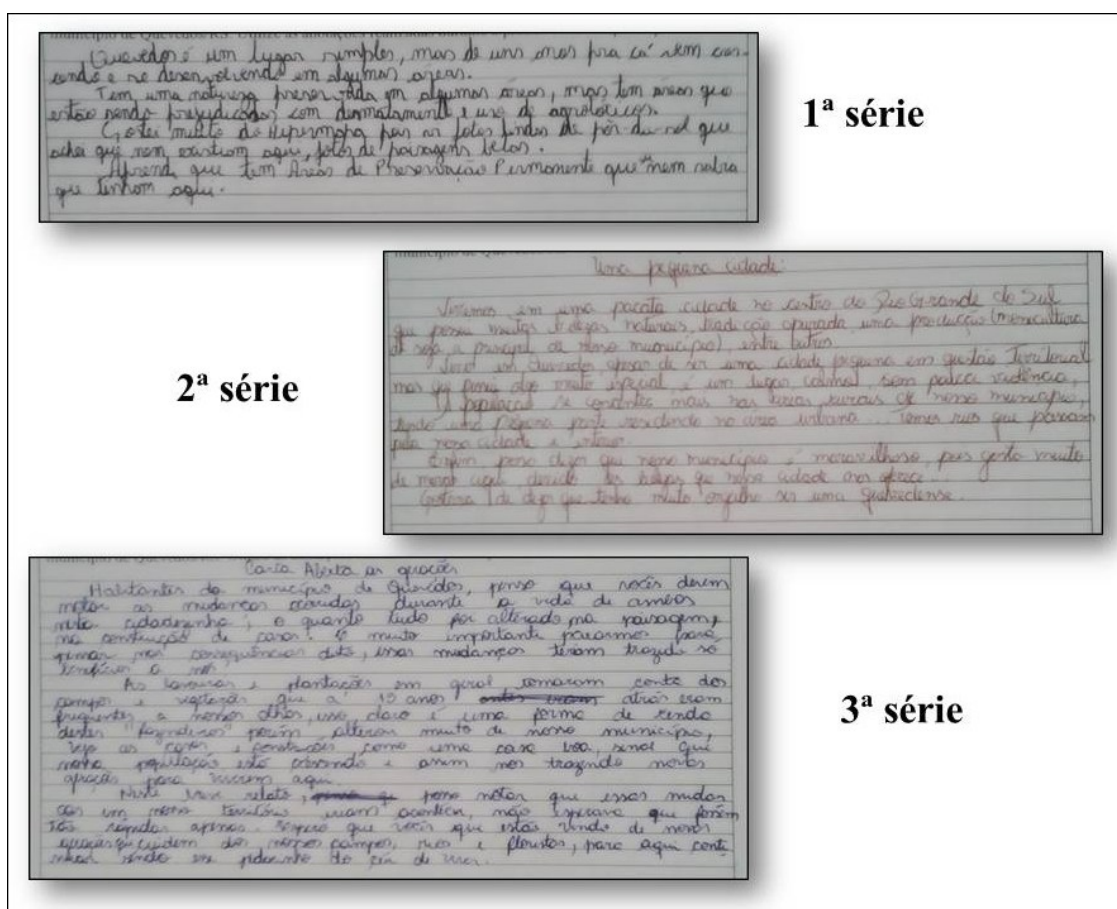 Quevedos é um lugar simples, mas de uns anos pra cá vem cres-
cendo e se desenvolvendo em algumas áreas.
Tem uma natureza preservada em algumas áreas, mas tem áreas que
estão sendo prejudicadas com desmatamento e uso de agrotóxicos.
Gostei muito do Hipermapa pois as fotos lindas de pôr-do-sol que
achei que nem existiam aqui, fotos de paisagens belas.
Aprendi que tem Áreas de Preservação Permanente que nem sabia
que tinham aqui.
1ª série
Uma pequena cidade
Vivemos em uma pacata cidade no centro do Rio Grande do Sul
que possui muitas belezas naturais, tradição apurada, uma produção (monocultura
da soja, a principal de nosso município), entre outros.
Viver em Quevedos, apesar de ser uma cidade pequena em questão Territorial
mas que possui algo muito especial é um lugar calmo, sem violência,
A população se concentra mais nas áreas rurais de nosso município,
tendo uma pequena parte residindo na área urbana... Temos rios que passam
pela nossa cidade e interior.
Enfim, posso dizer que nosso município é maravilhoso, pois gosto muito
de morar aqui, devido as belezas que nossa cidade nos oferece...
Gostaria de dizer que tenho muito orgulho ser uma quevedense.
2ª série
Carta Aberta as gerações
Habitantes do município de Quevedos, penso que vocês devem
notar as mudanças ocorridas durante a vida de ambos
nesta cidadezinha, o quanto tudo foi alterado na paisagem,
na construção de casas. É muito importante pararmos para
pensar nas consequências disto, essas mudanças teriam trazido só
benefícios a nós.
As lavouras e plantações em geral tomaram conta dos
campos e que a 15 anos atrás eram
frequentes a nossos olhos, isso claro é uma forma de renda
destes fazendeiros porém alteram muito de nosso município,
vejo as casas e construções como uma coisa boa, sinal que
nossa população está crescendo e assim nos trazendo novas
gerações para viverem aqui.
Neste breve relato, posso notar que essas mudan
ças em nosso território iriam acontecer, não esperava que fossem
tão rápidas apenas. Espero que vocês que estão vindo de novas
gerações cuidem dos nossos campos, rios e florestas, para aqui conti
nuar sendo um pedacinho do céu de
3ª série